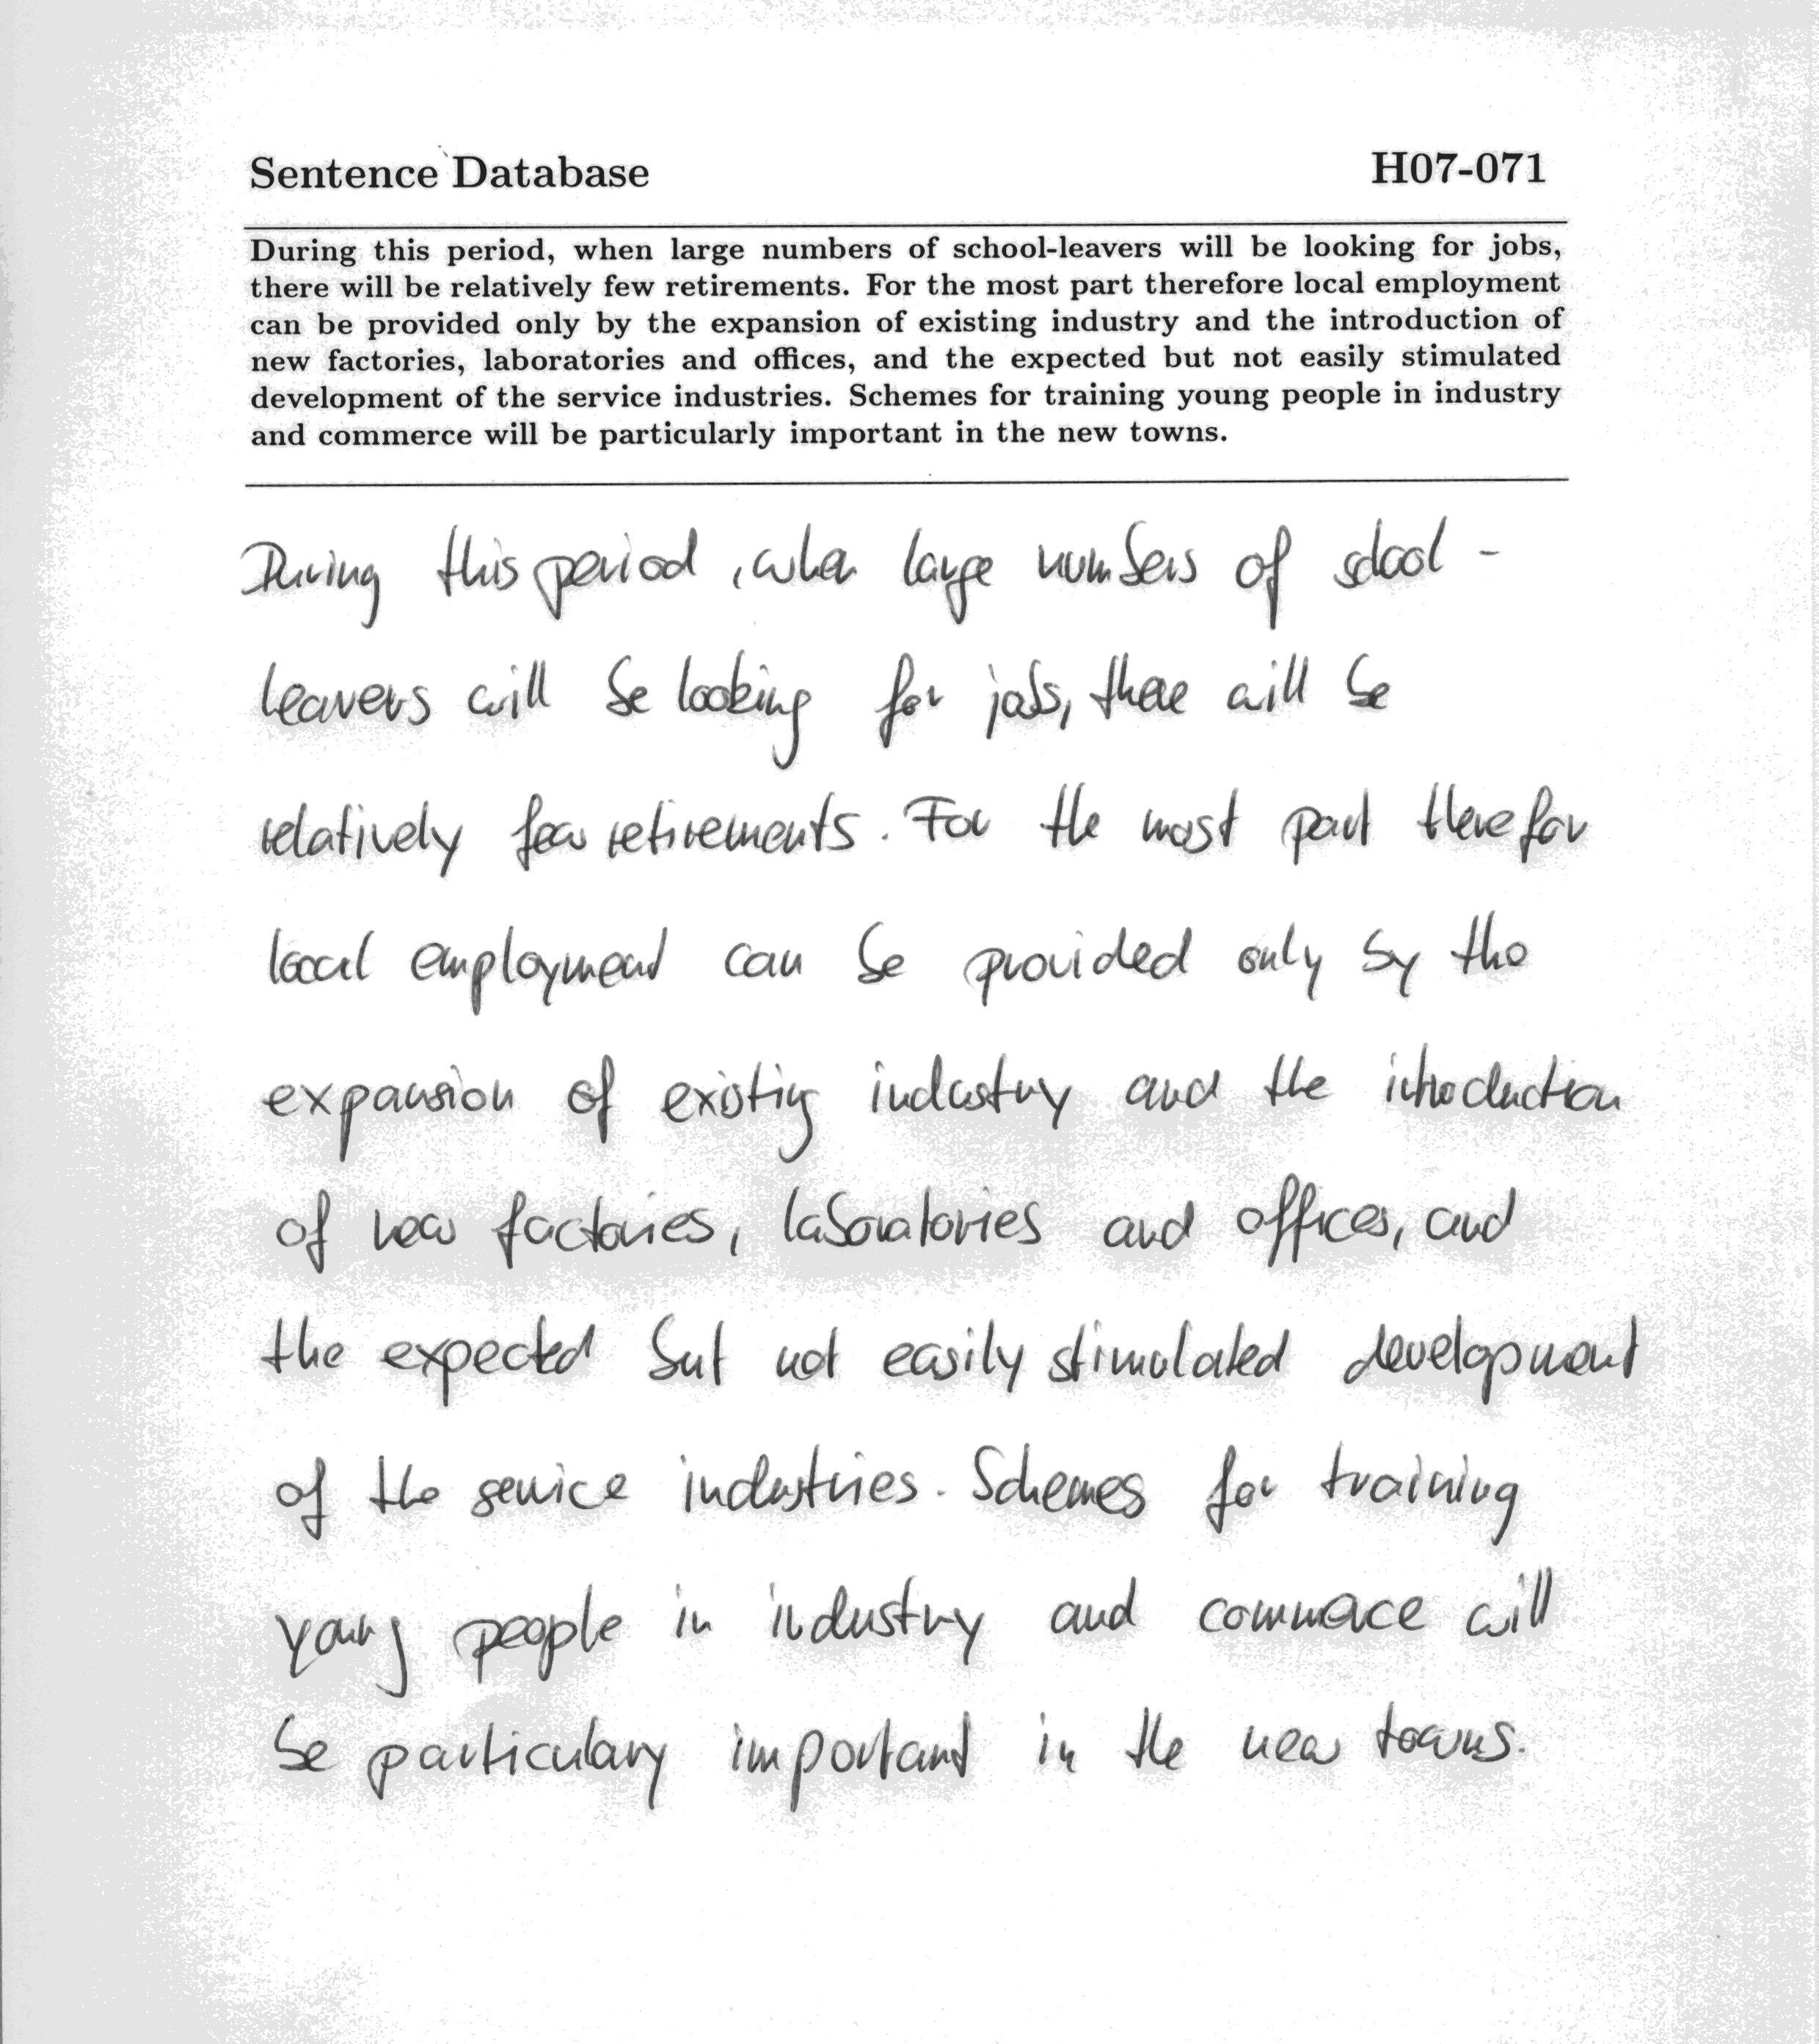 Sentence Database H07-071
During this period, when large numbers of school-leavers will be looking for jobs,
there will be relatively few retirements. For the most part therefore local employment
can be provided only by the expansion of existing industry and the introduction of
new factories, laboratories and offices, and the expected but not easily stimulated
development of the service industries. Schemes for training young people in industry
and commerce will be particularly important in the new towns.
During this period, when large numbers of school -
leavers will be looking for jobs, there will be
relatively few retirements. For the most part therefor
local employment can be provided only by the
expansion of existing industry and the introduction
of new factories, laboratories and offices, and
the expected but not easily stimulated development
of the service industries. Schemes for training
young people in industry and commerce will
be particulary important in the new towns.